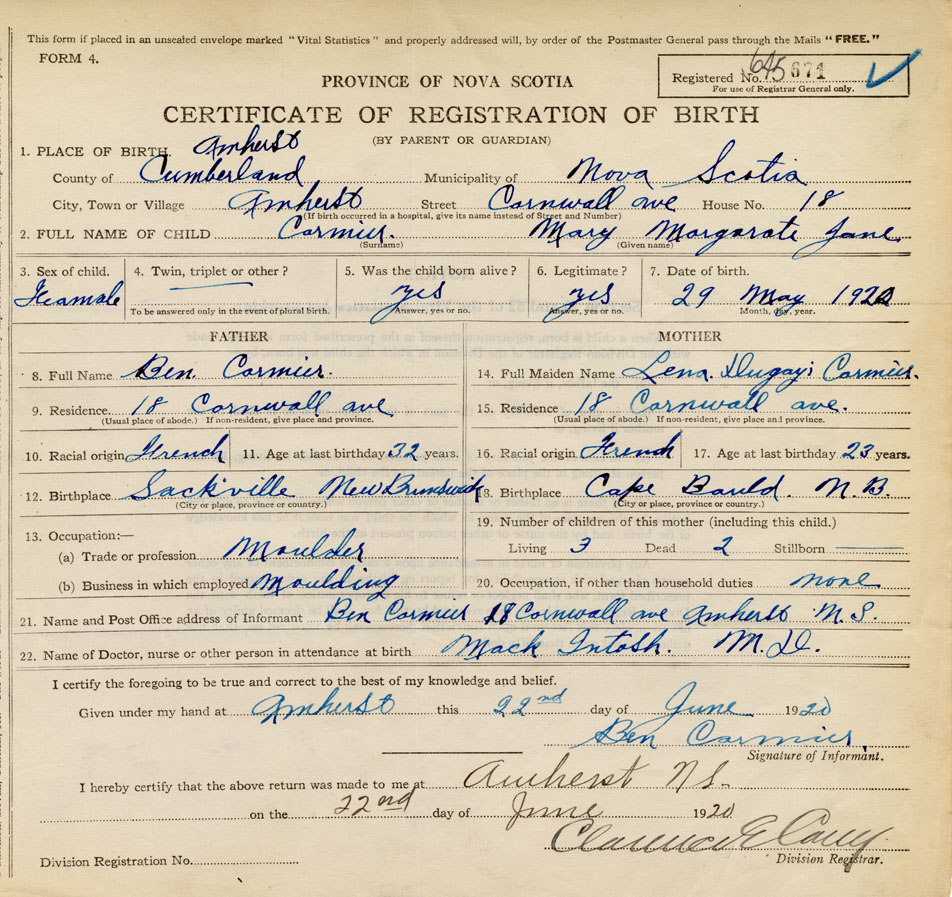 This form if placed in an unsealed envelope marked "Vital Statistics" and properly addressed will, by order of the Postmaster General pass through the Mails "FREE."
FORM 4.
Registered No. 645 671
For use of Registrar General only.
PROVINCE OF NOVA SCOTIA
CERTIFICATE OF REGISTRATION OF BIRTH
(BY PARENT OR GUARDIAN)
1. PLACE OF BIRTH. Amherst
County of Cumberland Municipality of Nova Scotia
City, Town or Village Amherst Street Cornwall ave House No. 18
(If birth occurred in a hospital, give its name instead of Street and Number)
2. FULL NAME OF CHILD Cormier. Mary Margarate Jane
(Surname) (Given name)
3. Sex of child. 4. Twin, triplet or other? 5. Was the child born alive? 6. Legitimate? 7. Date of birth.
Feamale yes yes 29 May 1920
To be answered only in the event of plural birth. Answer, yes or no. Answer, yes or no. Month, day, year.
FATHER MOTHER
8. Full Name Ben. Cormier. 14. Full Maiden Name Lena. Dugay; Cormier.
9. Residence 18 Cornwall ave 15. Residence 18 Cornwall ave.
(Usual place of abode.) If non-resident, give place and province. (Usual place of abode.) If non-resident, give place and province.
10. Racial origin French 11. Age at last birthday 32 years. 16. Racial origin French 17. Age at last birthday 23 years.
12. Birthplace Sackville New Brunswick 18. Birthplace Cape Bauld. N.B.
(City or place, province or country.) (City or place, province or country.)
13. Occupation:— 19. Number of children of this mother (including this child.)
(a) Trade or profession Moulder Living 3 Dead 2 Stillborn
(b) Business in which employed Moulding 20. Occupation, if other than household duties none
21. Name and Post Office address of Informant Ben Cormier 18 Cornwall ave Amherst N.S.
22. Name of Doctor, nurse or other person in attendance at birth Mack Intosh. M.D.
I certify the foregoing to be true and correct to the best of my knowledge and belief.
Given under my hand at Amherst this 22nd day of June 1920
Ben Cormier
Signature of Informant.
I hereby certify that the above return was made to me at Amherst N.S.
on the 22nd day of June 1920
Clarence E Casey
Division Registration No. Division Registrar.